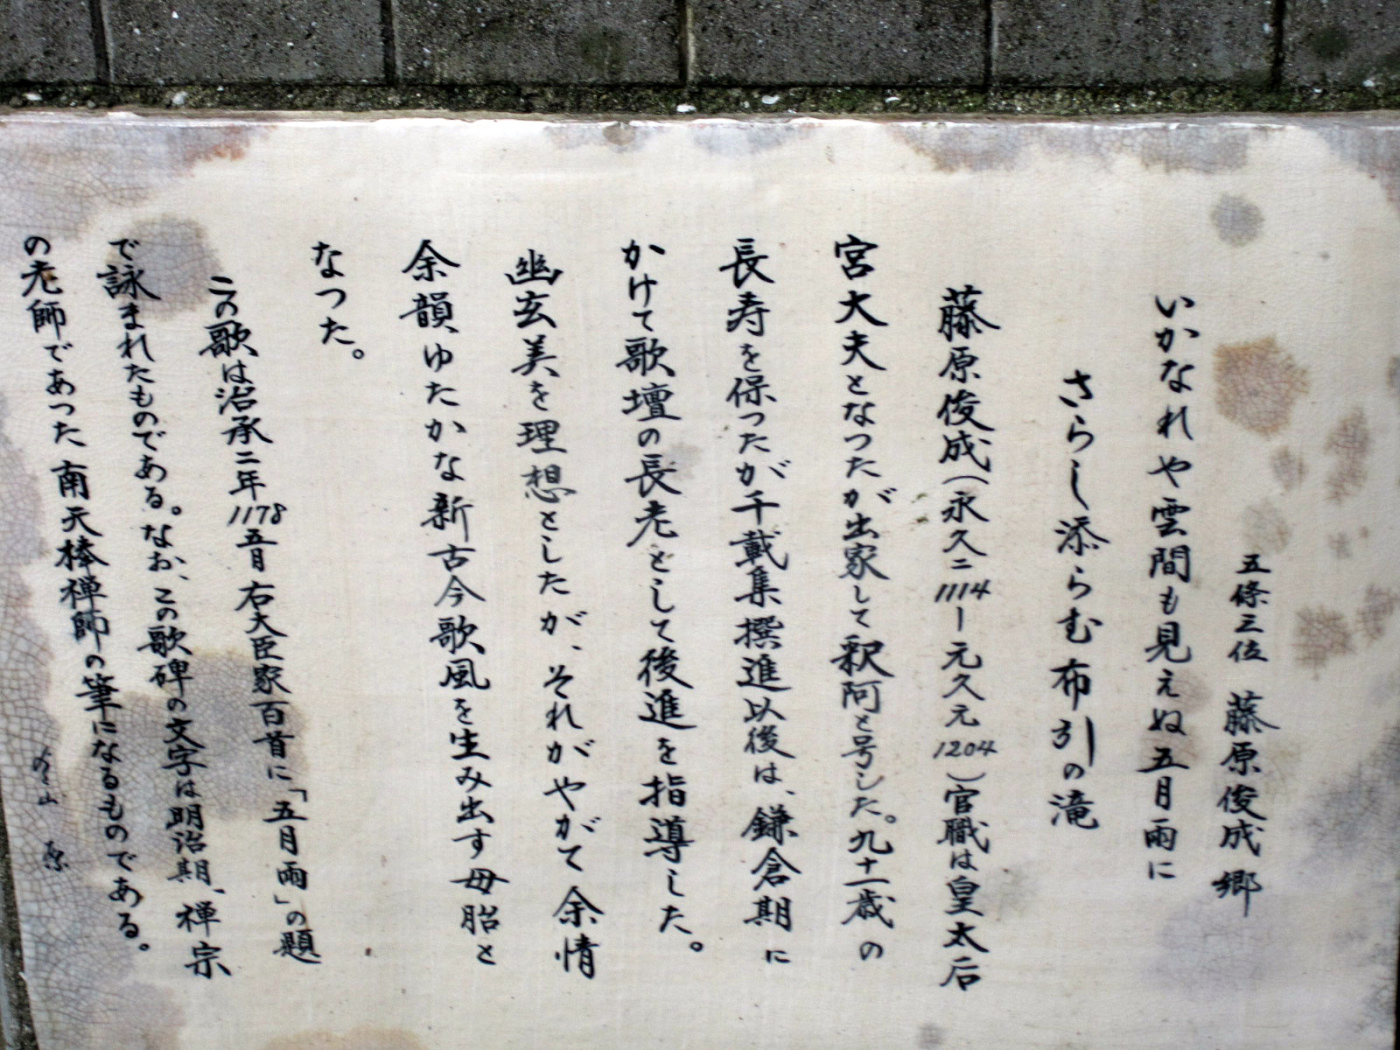 五條三位 藤原俊成郷
いかなれや雲間も見えぬ五月雨に
さらし添らむ布引の滝
藤原俊成(永久二1114ー元久元1204)官職は皇太后
宮大夫となつたが出家して釈阿と号した。九十一歳の
長寿を保つたが千載集撰進以後は、鎌倉期に
かけて歌壇の長老として後進を指導した。
幽玄美を理想としたが、それがやがて余情
余韻、ゆたかな新古今歌風を生み出す母胎と
なつた。
この歌は治承二年1178五月右大臣家百首に「五月雨」の題
で詠まれたものである。なお、この歌碑の文字は明治期、禅宗
の老師であつた南天棒禅師の筆になるものである。